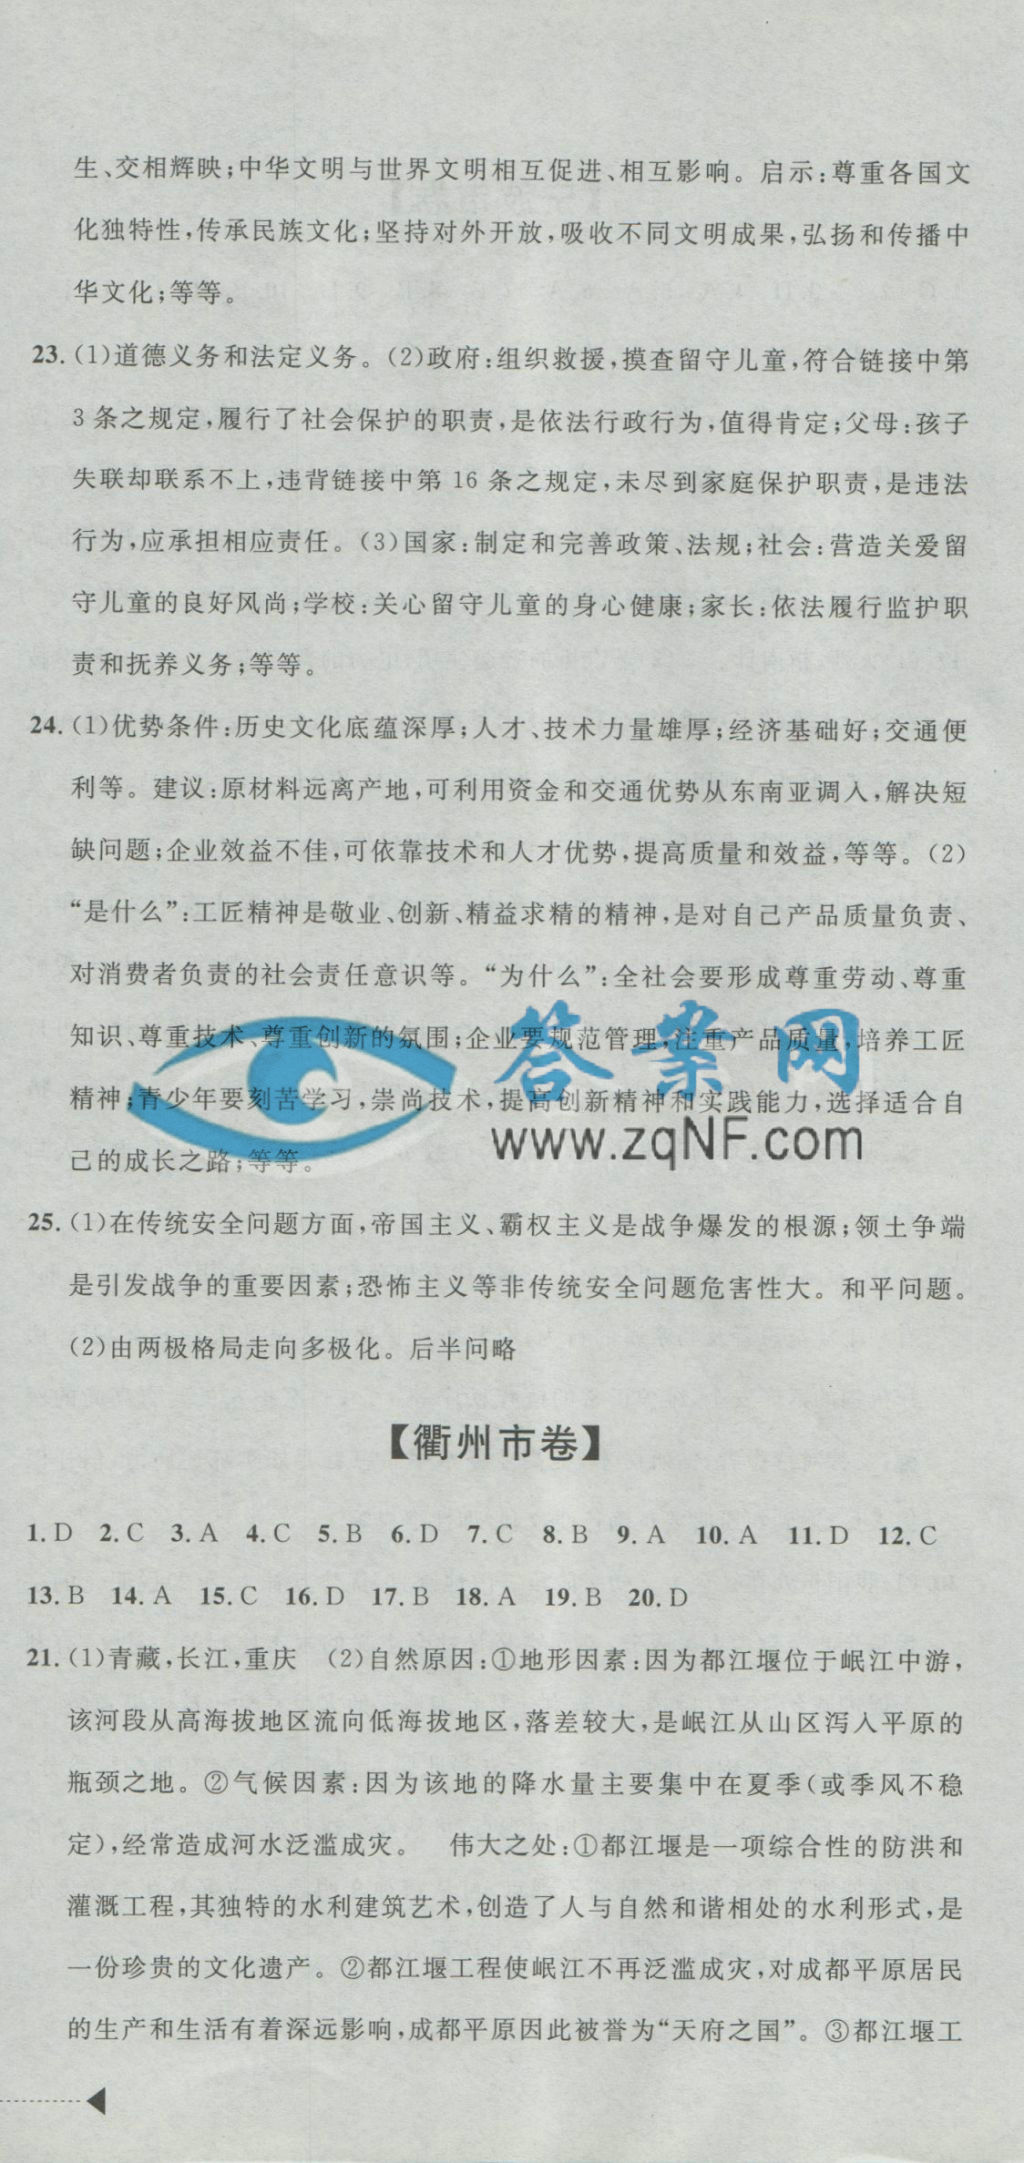 生、交相辉映;中华文明与世界文明相互促进、相互影响。启示:尊重各国文
化独特性,传承民族文化;坚持对外开放,吸收不同文明成果,弘扬和传播中
华文化;等等。
23.(1)道德义务和法定义务。(2)政府:组织救援,摸查留守儿童,符合链接中第
3条之规定,履行了社会保护的职责,是依法行政行为,值得肯定;父母:孩子
失联却联系不上,违背链接中第16条之规定,未尽到家庭保护职责,是违法
行为,应承担相应责任。(3)国家:制定和完善政策、法规;社会:营造关爱留
守儿童的良好风尚;学校:关心留守儿童的身心健康;家长:依法履行监护职
责和抚养义务;等等。
24.(1)优势条件:历史文化底蕴深厚;人才、技术力量雄厚;经济基础好;交通便
利等。建议:原材料远离产地,可利用资金和交通优势从东南亚调入,解决短
缺问题;企业效益不佳,可依靠技术和人才优势,提高质量和效益,等等。(2)
“是什么”:工匠精神是敬业、创新、精益求精的精神,是对自己产品质量负责、
对消费者负责的社会责任意识等。“为什么”:全社会要形成尊重劳动、尊重
知识、尊重技术、尊重创新的氛围;企业要规范管理,注重产品质量,培养工匠
精神;青少年要刻苦学习,崇尚技术,提高创新精神和实践能力,选择适合自
己的成长之路;等等。
答案网
www.zqNF.com
25.(1)在传统安全问题方面,帝国主义、霸权主义是战争爆发的根源;领土争端
是引发战争的重要因素;恐怖主义等非传统安全问题危害性大。和平问题。
(2)由两极格局走向多极化。后半问略
【衢州市卷】
1.D 2.C 3.A 4.C 5.B 6.D 7.C 8.B 9.A 10.A 11.D 12.C
13.B 14.A 15.C 16.D 17.B 18.A 19.B 20.D
21.(1)青藏,长江,重庆 (2)自然原因:①地形因素:因为都江堰位于岷江中游,
该河段从高海拔地区流向低海拔地区,落差较大,是岷江从山区泻入平原的
瓶颈之地。②气候因素:因为该地的降水量主要集中在夏季(或季风不稳
定),经常造成河水泛滥成灾。 伟大之处:①都江堰是一项综合性的防洪和
灌溉工程,其独特的水利建筑艺术,创造了人与自然和谐相处的水利形式,是
一份珍贵的文化遗产。②都江堰工程使岷江不再泛滥成灾,对成都平原居民
的生产和生活有着深远影响,成都平原因此被誉为“天府之国”。③都江堰工